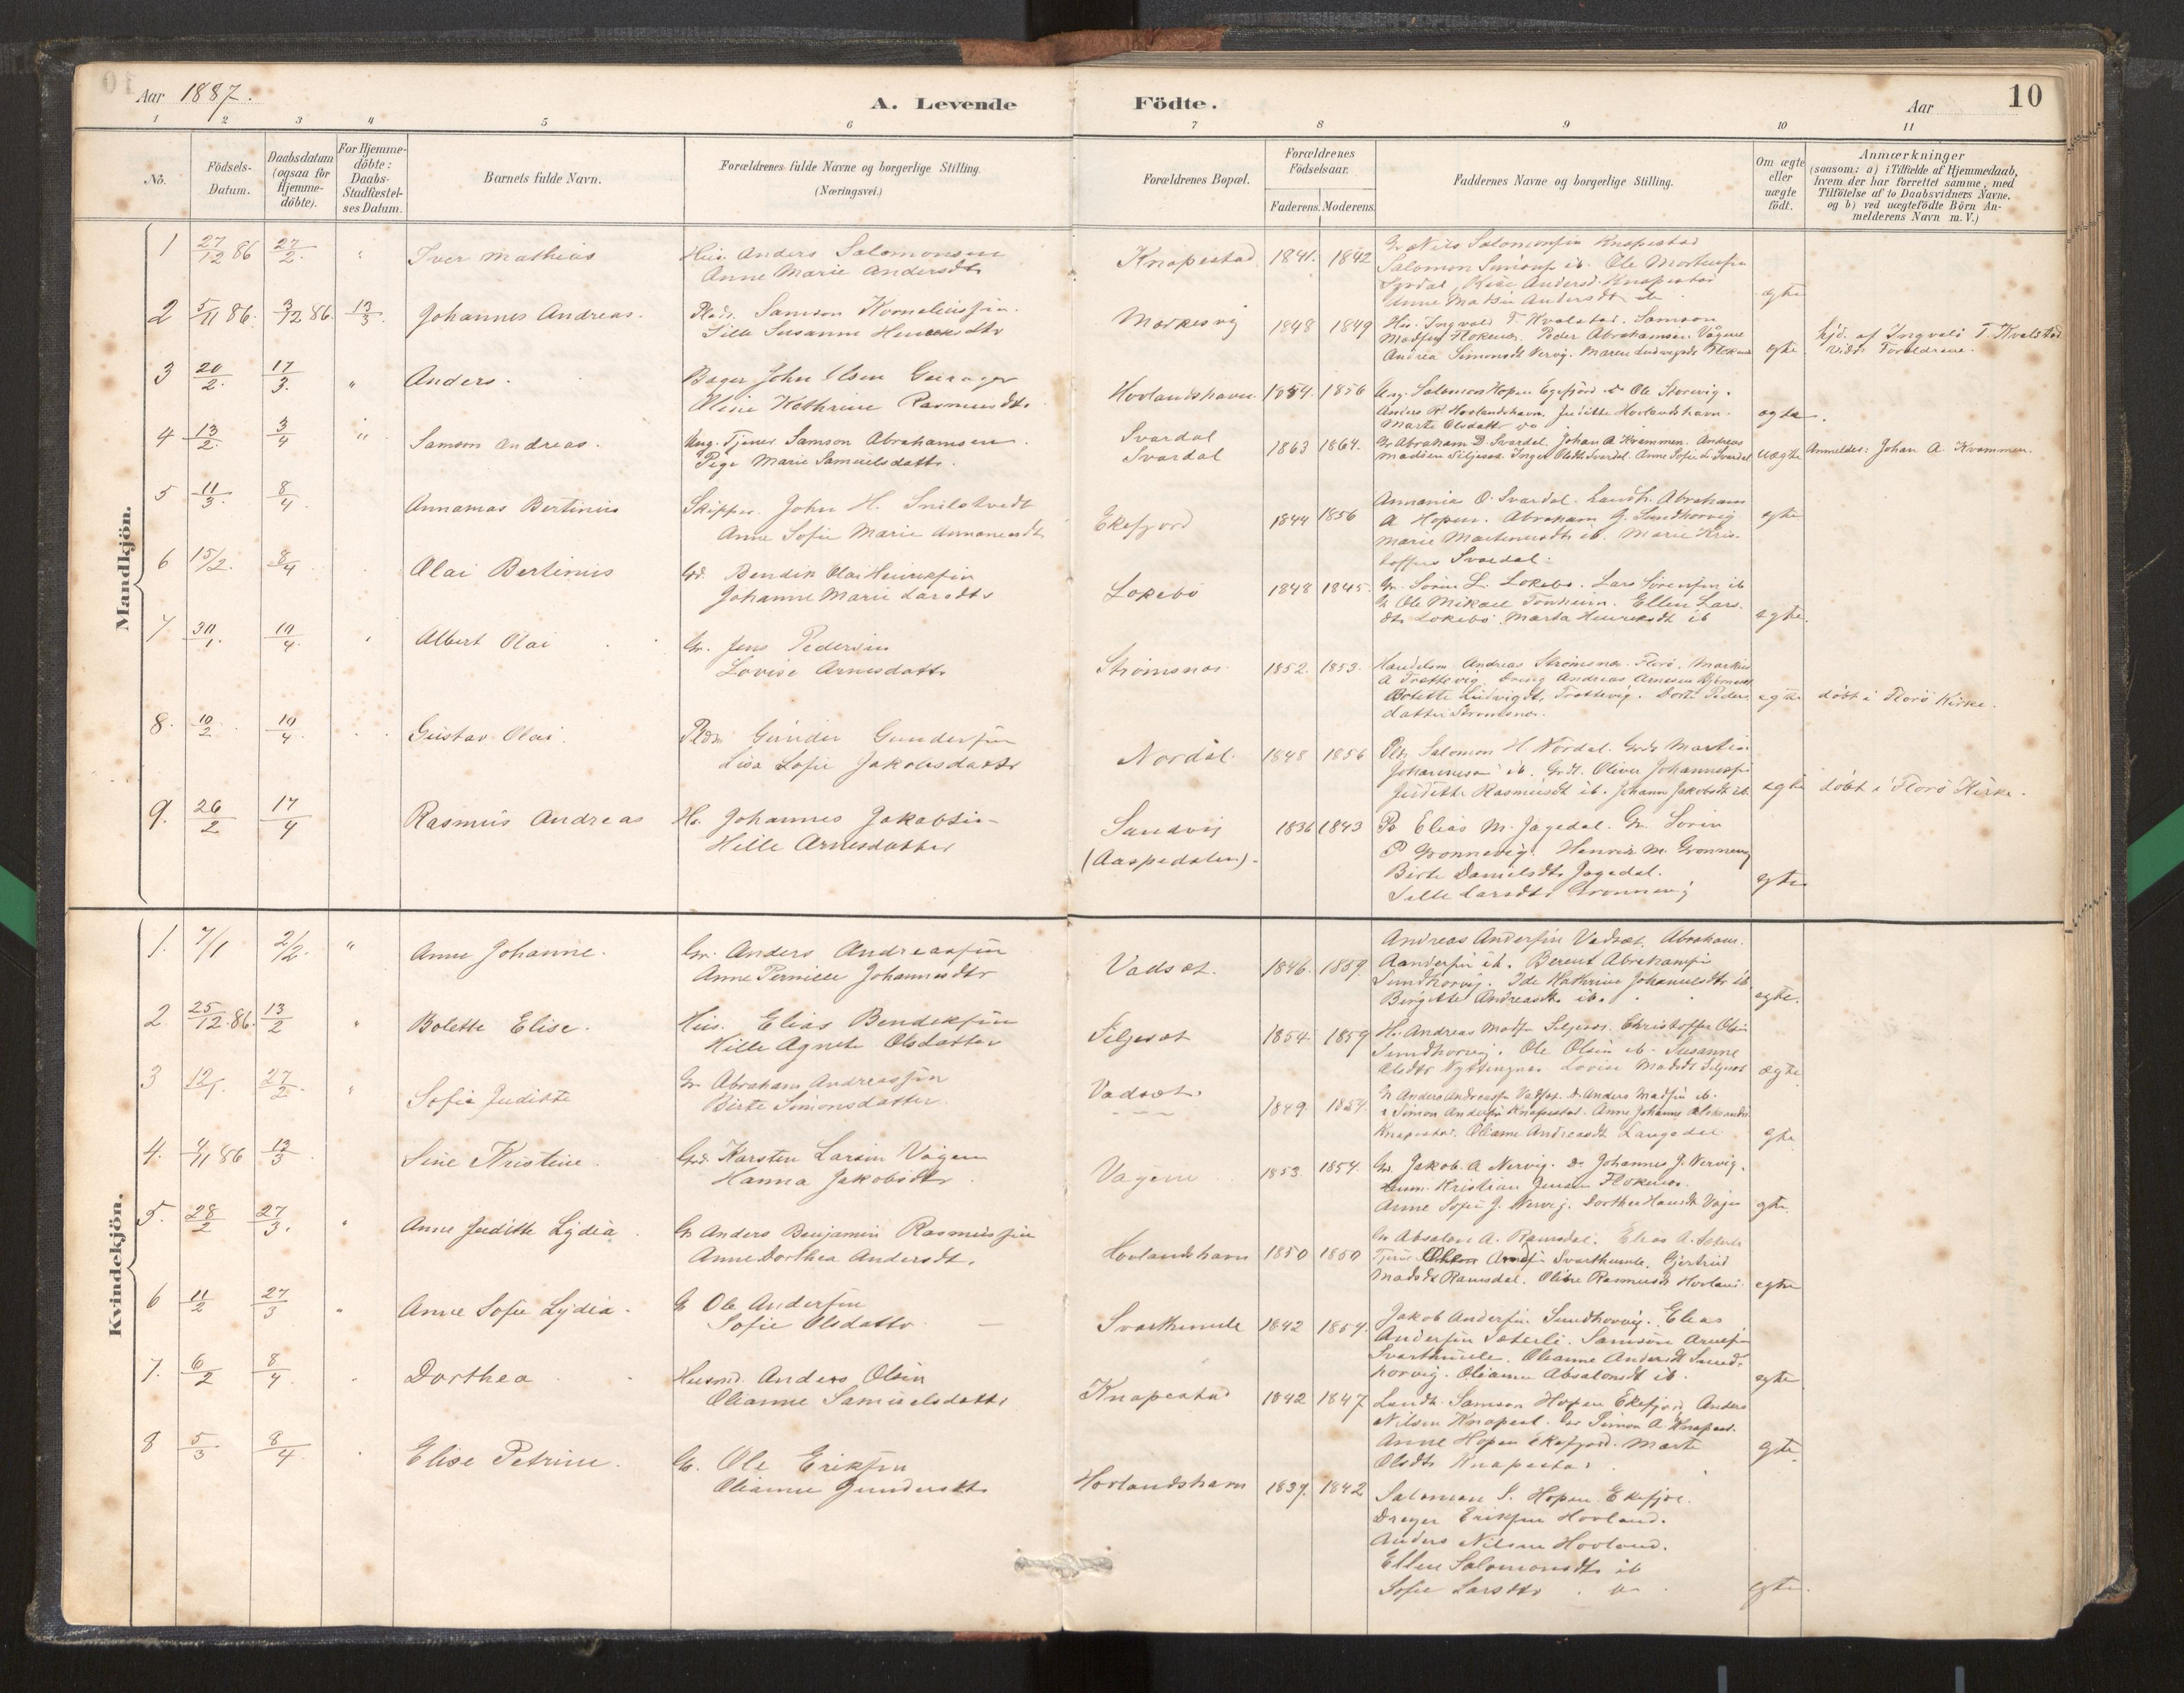 Aar 1887.
A. Levende Födte.
Aar
10
1 2 3 4 5 6 7 8 9 10 11
No.
Födsels-Datum.
Daabsdatum (ogsaa for Hjemme-döbte).
For Hjemme-döbte: Daabs-Stadfæstel-ses Datum.
Barnets fulde Navn.
Forældrenes fulde Navne og borgerlige Stilling. (Næringsvei.)
Forældrenes Bopæl.
Forældrenes Födselsaar.
Faderens. Moderens.
Faddernes Navne og borgerlige Stilling.
Om ægte eller uægte födt.
Anmærkninger
(saasom: a) i Tilfælde af Hjemmedaab,
hvem der har forrettet samme, med
Tilföielse af to Daabsvidners Navne,
og b) ved uægtefödte Börn An-
melderens Navn m. V.)
Mandkjön.
1 27/12 86 27/2 " Iver Mathias
Hus. Anders Salomonsen
Anne Marie Andersdtr
Knapestad 1841. 1842
Gr Nils Salomonsen Knapestad
Salomon ib. Ole
Anne Andersdt
egte
2 5/11 86. 3/12 86 13/3 Johannes Andreas.
Samson Korneliussen.
Sille Susanne
1848 1849
Hus. Ingvald T Kvalstad. Samson
Peder Abrahamsen Vågene
Andrea Simonsdt Nervig. Maren
egte
hjd. af Ingvald T. Kvalstad
Forældrene.
3 20/2. 17/3. " Anders.
Bager John Olsen
Oline Kathrine Rasmusdtr
Hovlandshavn 1854. 1856
Salomon Hopen do Ole Storevig.
Anders R. Hovlandshavn. Juditte Hovlandshavn.
Marte Olsdatter do
egte
4 13/2. 3/4 " Samson Andreas.
Ung. Tjener Samson Abrahamsen.
Pige Marie Samuelsdatter.
Svardal
Svardal
1863 1864.
Gr Abraham D. Svardal. Johan A Krammen. Andreas
Madsen Siljesæt. Inger Svardal. Anne Sofie Svardal
uægte
Anmelder: Johan A. Krammen.
5 11/3. 8/4 Annanias Bertinius
Skipper. John H. Snilstvedt
Anne Sofie Marie
Ekefjord 1844 1856
Annania O. Svardal. Landh. Abraham
A Hopen. Abraham G. Sundhorvig
Marie ib. Marie Kris-
toffers Svardal.
egte
6 15/2. 8/4 Olai Bertinius
Gd. Bendik Olai Henriksen
Johanne Marie Larsdtr
Lokebø 1848 1845.
Gr. Sören L. Lokebø. Lars Sörensen ib
Gr Ole Mikael Tonheim. Ellen Lars-
dtr Lokebø. Marta Henriksdt ib
egte.
7 30/1. 10/4. Albert Olai
Gr. Jens Pedersen
Lovise Arnesdattr
Strömsnæs 1852. 1853.
Handelsm Andreas Strömsnæs Florö. Markus
A Trættevig. Dreng Andreas Arnesen
Bolette Ludvigdt. Trættevig. Dorte Peders
datter Strømsnæs.
egte
döbt i Florö Kirke.
8. 10/2 10/4. Gustav Olai.
Gunder Gundersen
Lisa Sofie Jakobsdattr
Nordal. 1848 1856
Salomon H. Nordal. Martin
Johannesen ib. Oliver Johannesen
Juditte Rasmusdt ib. Johanne Jakobsdt ib.
egte
döbt i Florö Kirke.
9. 26/2 17/4 Rasmus Andreas
Hr. Johannes Jakobsen
Hille Arnesdatter
Sandvig
(Aaspedalen).
1836 1843
Elias M. Jagedal. Gr. Sören
P Grönnevig. Henrik M. Grönnevig
Birte Danielsdtr Jagedal.
Sille Larsdtr Grönnevig
egte
Kvindekjön.
1. 7/1 2/2. " Anne Johanne.
Gr. Anders Andreassen
Anne Pernille Johannesdtr
Vadsæt. 1846. 1859.
Andreas Andersen Vadsæt. Abraham.
Andersen ib. Berent Abrahamsen
Sundhorvig. Ide Kathrine Johannesdtr ib.
Birgitte Andreasdtr ib.
egte.
2. 25/12. 86. 13/2 " Bolette Elise.
Hus. Elias Bendiksen
Hille Agnete Olsdatter
Siljesæt 1854. 1859
Hr. Andreas Madsen Siljesæt. Christoffer Olsen
Sundhorvig. Ole Olsen ib. Susanne
Olsdtr Nyttingnes Lovise Madsdtr Siljesæt
ægte
3 12/1. 27/2. " Sofie Juditte
Gr. Abraham Andreassen
Birte Simonsdatter.
Vadsæt. 1849 1854.
Gr Anders Andreassen Vadsæt. Dr Anders Madsen ib.
Simon Andersen Knapestad. Anne Johanne
Knapestad. Oliane Andreasdt Langedal
egte
4. 4/11 86 13/3 Sine Kristine.
Gd. Karsten Larsen Vågene
Hanna Jakobsdtr.
Vagene 1853. 1854.
Gr. Jakob. A Nervig. Dr Johannes J. Nervig.
Kristian Jensen
Anne Sofie J. Nervig. Dorthea
egte.
5. 28/2 27/3. " Anne Juditte Lydia
Gr Anders Benjamin Rasmussen
Anne Dorthea Andersdt.
Hovlandshavn 1850 1850
Gr Absalon A. Ramsdal. Elias A. Sæterli
Svarthumle. Gjertrud
Madsdt Ramsdal. Oline Rasmusdt Hovland.
egte
6 11/2 27/3 " Anne Sofie Lydia.
Gr Ole Andersen
Sofie Olsdattr.
Svarthumle 1842 1854.
Jakob Andersen Sundhorvig. Elias
Andersen Sæterli. Samson Arnesen
Svarthumle. Olianne Andersdt Sund-
horvig. Olianne Absalonsdt ib.
egte
7. 6/2 8/4 Dorthea
Husmd. Anders Olsen
Olianne Samuelsdattr
Knapestad 1842 1847
Landh. Samson Hopen Ekefjord Anders
Nilsen Knapest. Simon A. Knapest.
Anne Hopen Ekefjord. Marte
Olsdtr Knapestad.
egte.
8 5/3 8/4 Elise Petrine.
Gr. Ole Eriksen
Olianne Gundersdtr
Hovlandshavn 1839. 1842
Salomon S. Hopen. Ekefjor.
Dreyer Eriksen Hovland.
Anders Nilsen Hovland.
Ellen Salomonsdtr ib
Sofie Larsdtr
egte.